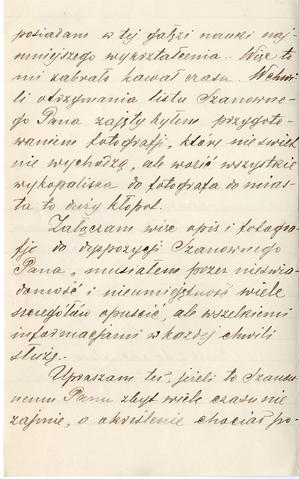 posiadam w tej gałęzi nauki naj-
mniejszego wykształcenia. Więc to
mi zabrało kawał czasu. W chwi-
li otrzymania listu Szanowne-
go Pana zajęty byłem przygoto-
waniem fotografji, które nie świet-
nie wychodzą, ale wozić wszystkie
wykopaliska do fotografa do mias-
ta to duży kłopot.
Załączam więc opis i fotogra-
fje do dyspozycji Szanownego
Pana, musiałem przez nieświa-
domość i nieumiejętność wiele
szczegółów opuścić, ale wszelkiemi
informacjami w każdej chwili
służę.
Upraszam też, jeżeli to Szanow-
nemu Panu zbyt wiele czasu nie
zajmie, o określenie chociaż po-